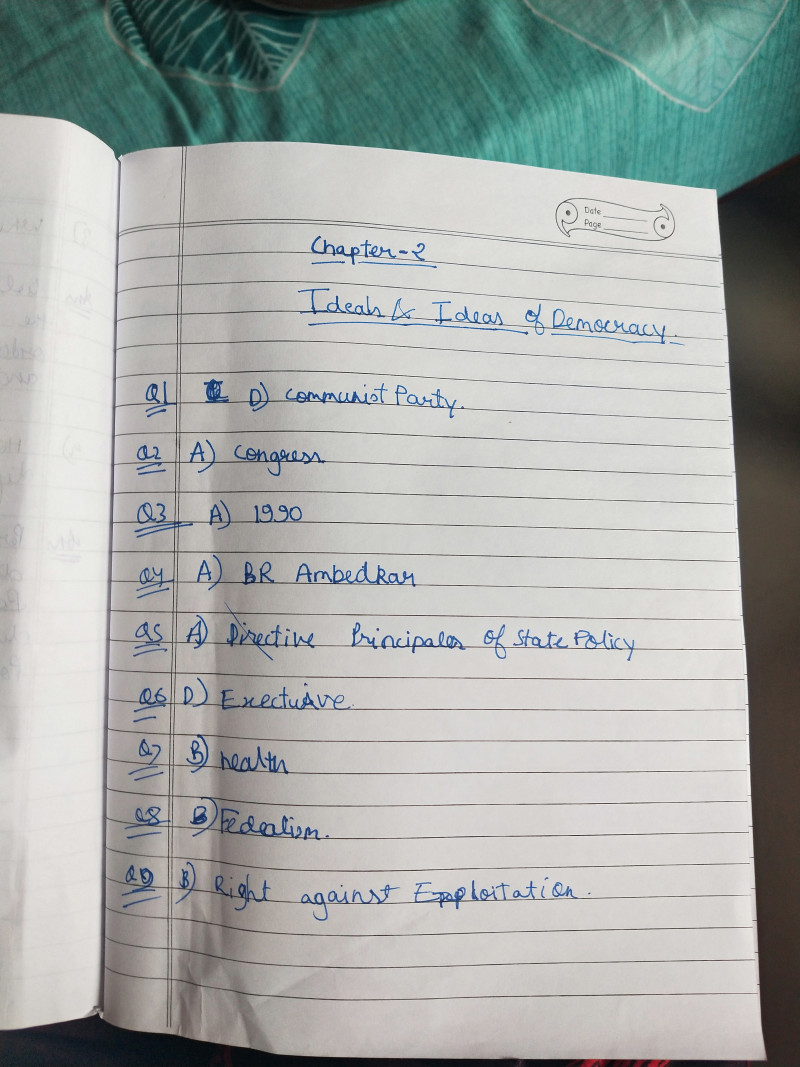 Date
Page
Chapter-2
Ideals & Ideas of Democracy.
Q1 D) Communist Party.
Q2 A) Congress
Q3 A) 1990
Q4 A) BR Ambedkar
Q5 A) Directive Principales of State Policy
Q6 D) Exectuive
Q7 B) health
Q8 B) Fedealism.
Q9 B) Right against Exploitation.